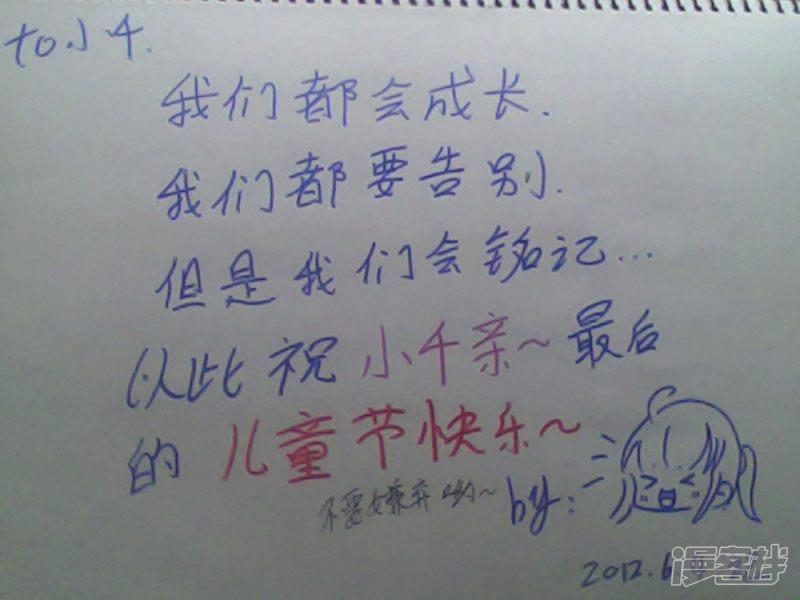 to小千.
我们都会成长.
我们都要告别.
但是我们会铭记...
以此祝小千亲~最后
的儿童节快乐~
不要嫌弃哟~
by:
2012.6
漫客栈